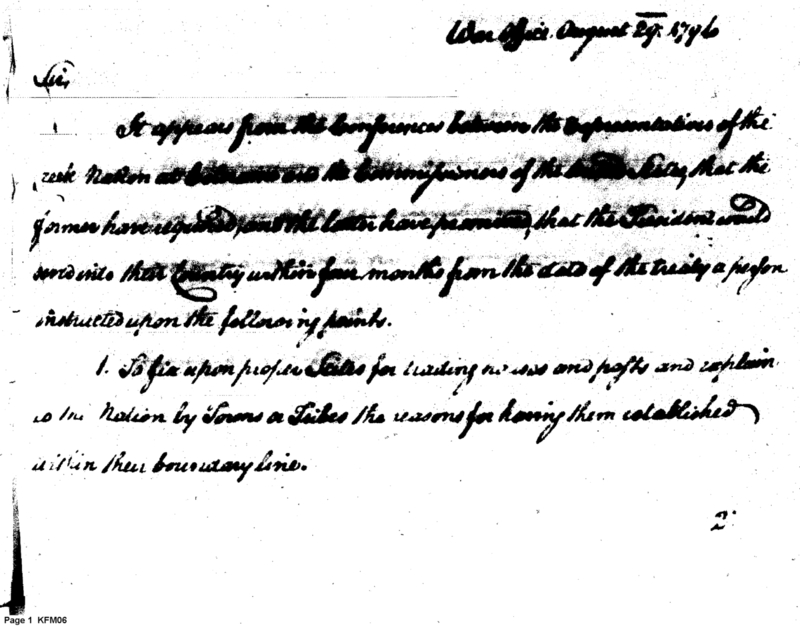 War Office. August 29. 1796
Sir,
It appears from the Conferences between the Representatives of the
reek Nation at Colerain and the Commissioners of the United States, that the
former have required, and the latter have promised, that the President would
send into their Country within four months from the date of the treaty a person
instructed upon the following points.
1. To fix upon proper Scites for trading houses and posts and explain
to the Nation by Towns or Tribes the reasons for having them established
within their boundary line.
2
Page 1 KFM06